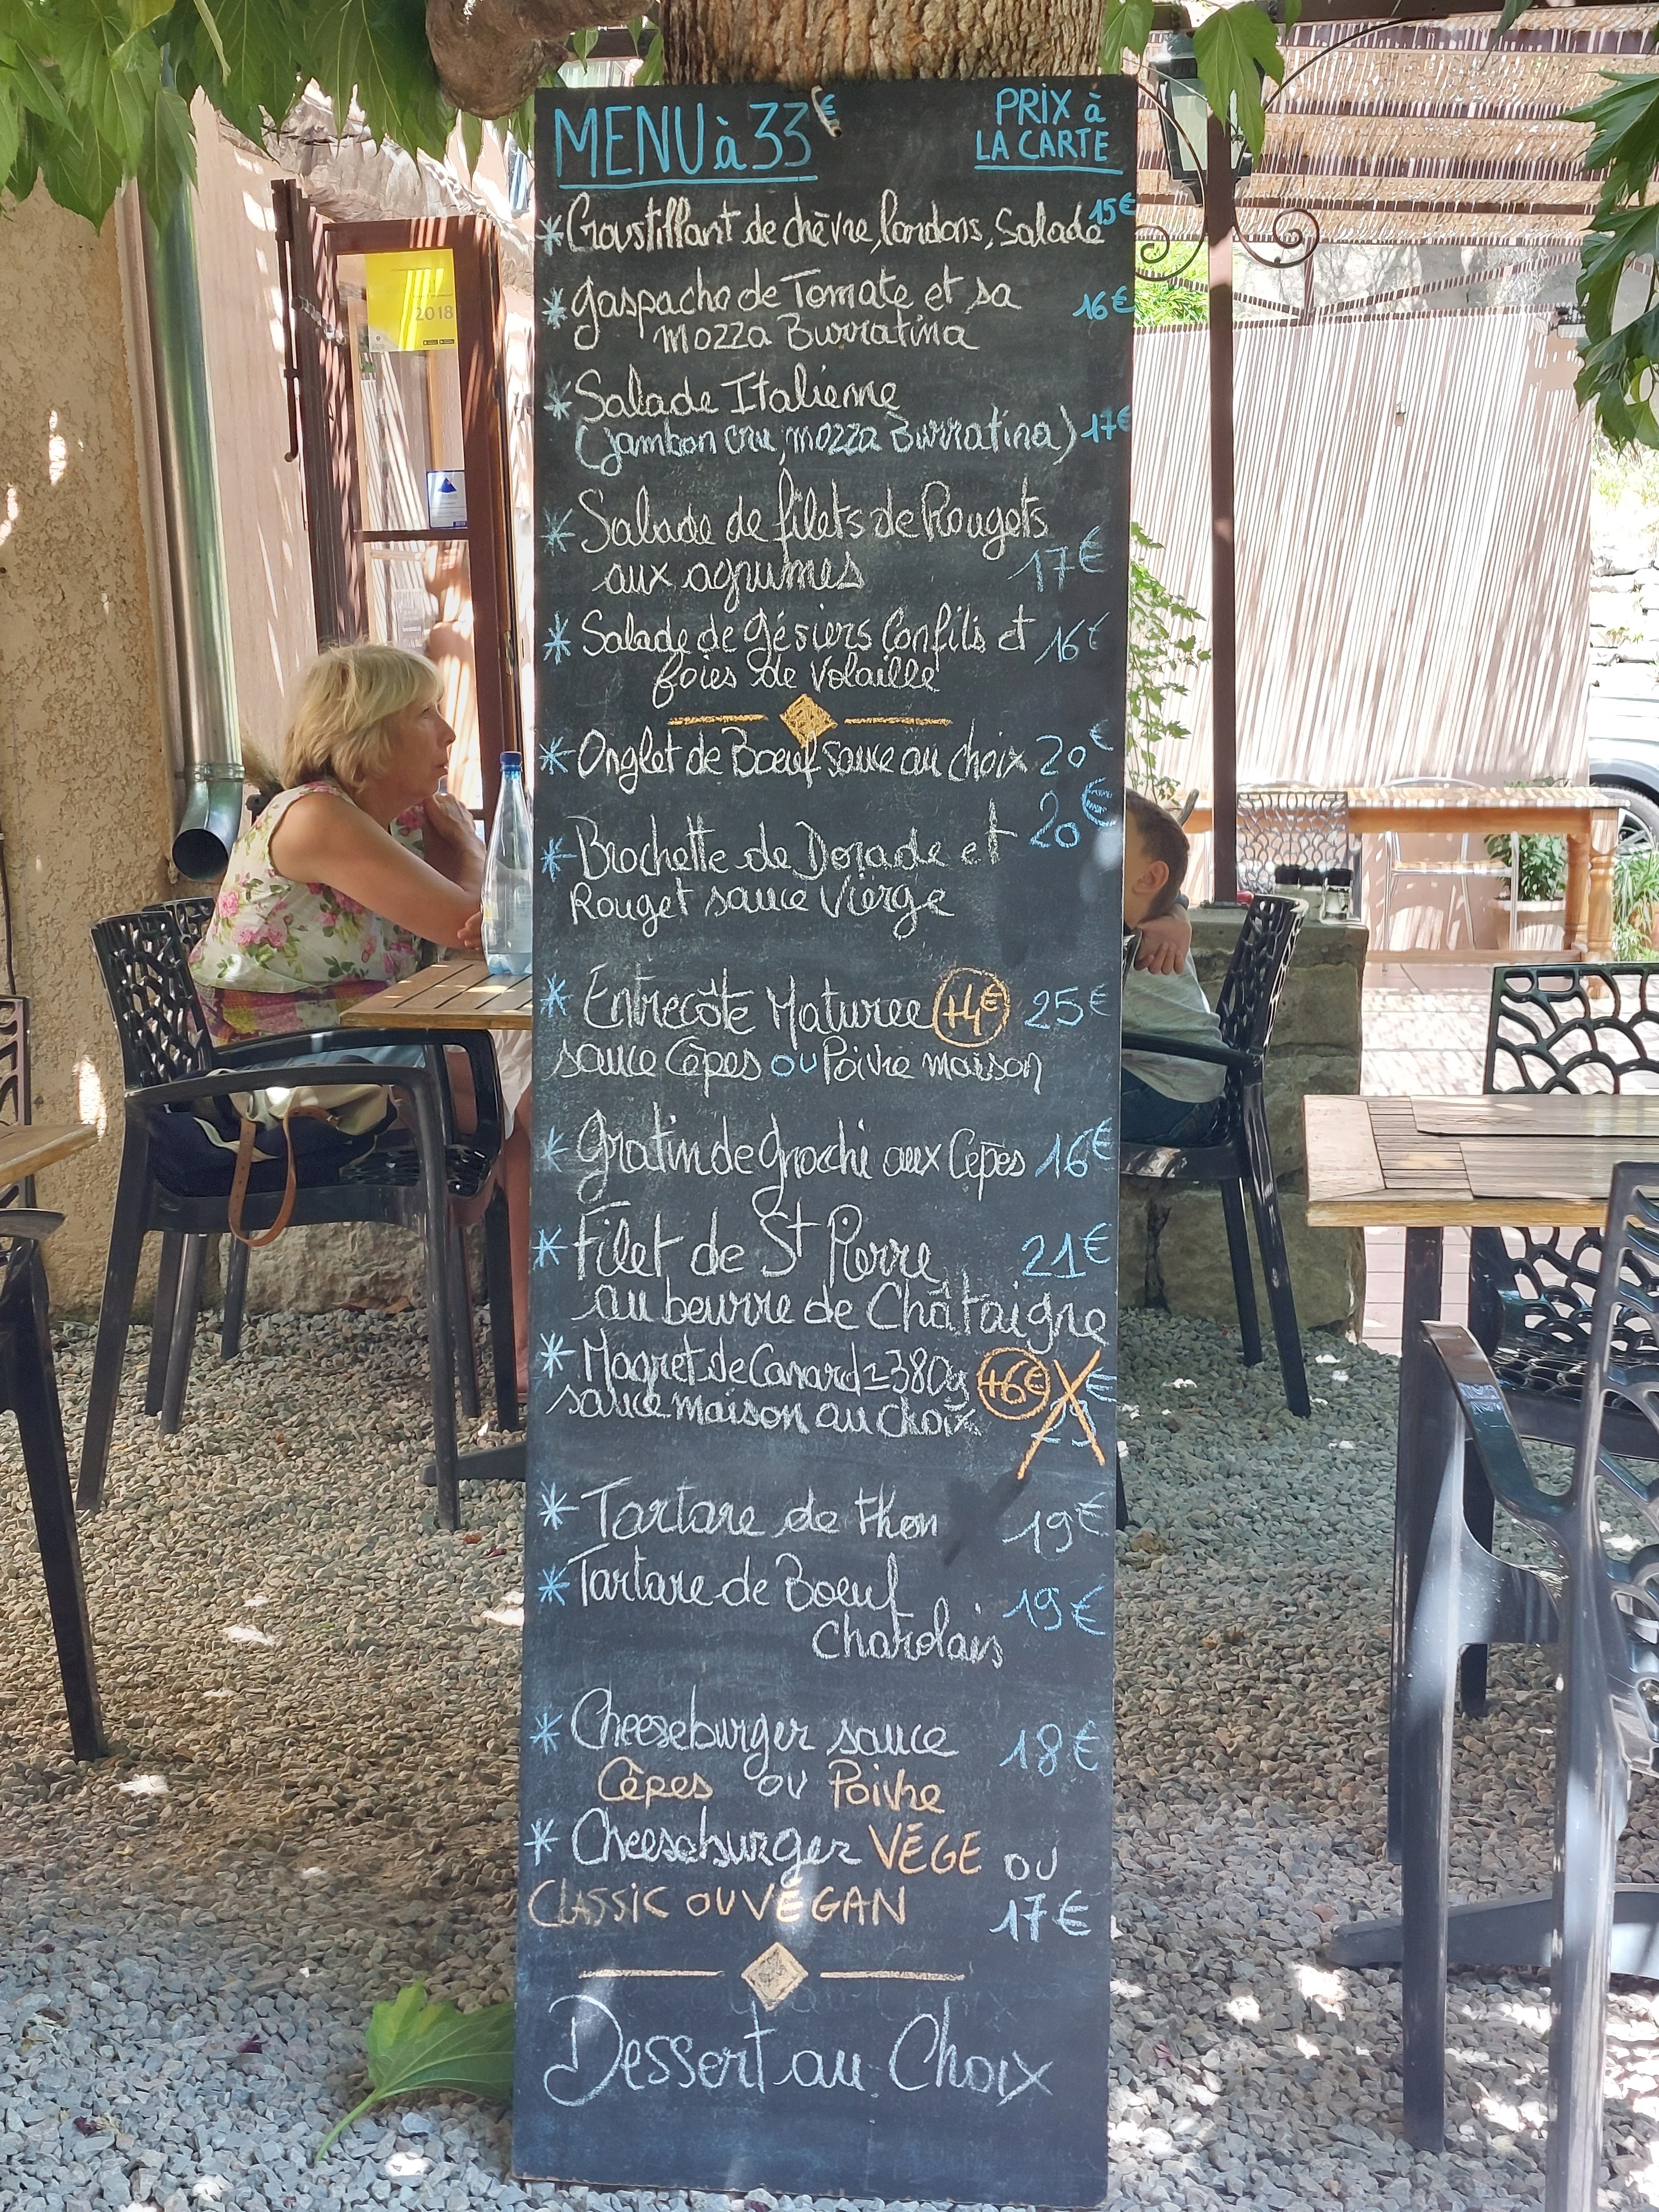 MENU à 33€
PRIX à
LA CARTE
* Croustillant de chèvre, lardons, Salade 15€
* Gaspacho de Tomate et sa 16€
mozza Burratina
* Salade Italienne
(jambon cru, mozza Burratina) 17€
* Salade de filets de Rougets
aux agrumes 17€
* Salade de gésiers Confits et 16€
foies de Volaille
* Onglet de Boeuf sauce au choix 20€
* Brochette de Dorade et 20€
Rouget sauce Vierge
* Entrecôte Maturee +4€ 25€
sauce Cèpes ou Poivre maison
* Gratin de gnochi aux Cèpes 16€
* Filet de St Pierre 21€
au beurre de Châtaigne
* Magret de Canard ≃ 380g +6€
sauce maison au choix
* Tartare de thon 19€
* Tartare de Boeuf 19€
Charolais
* Cheeseburger sauce 18€
Cèpes ou Poivre
* Cheeseburger VÉGE ou
CLASSIC OU VÉGAN 17€
Dessert au Choix
2018